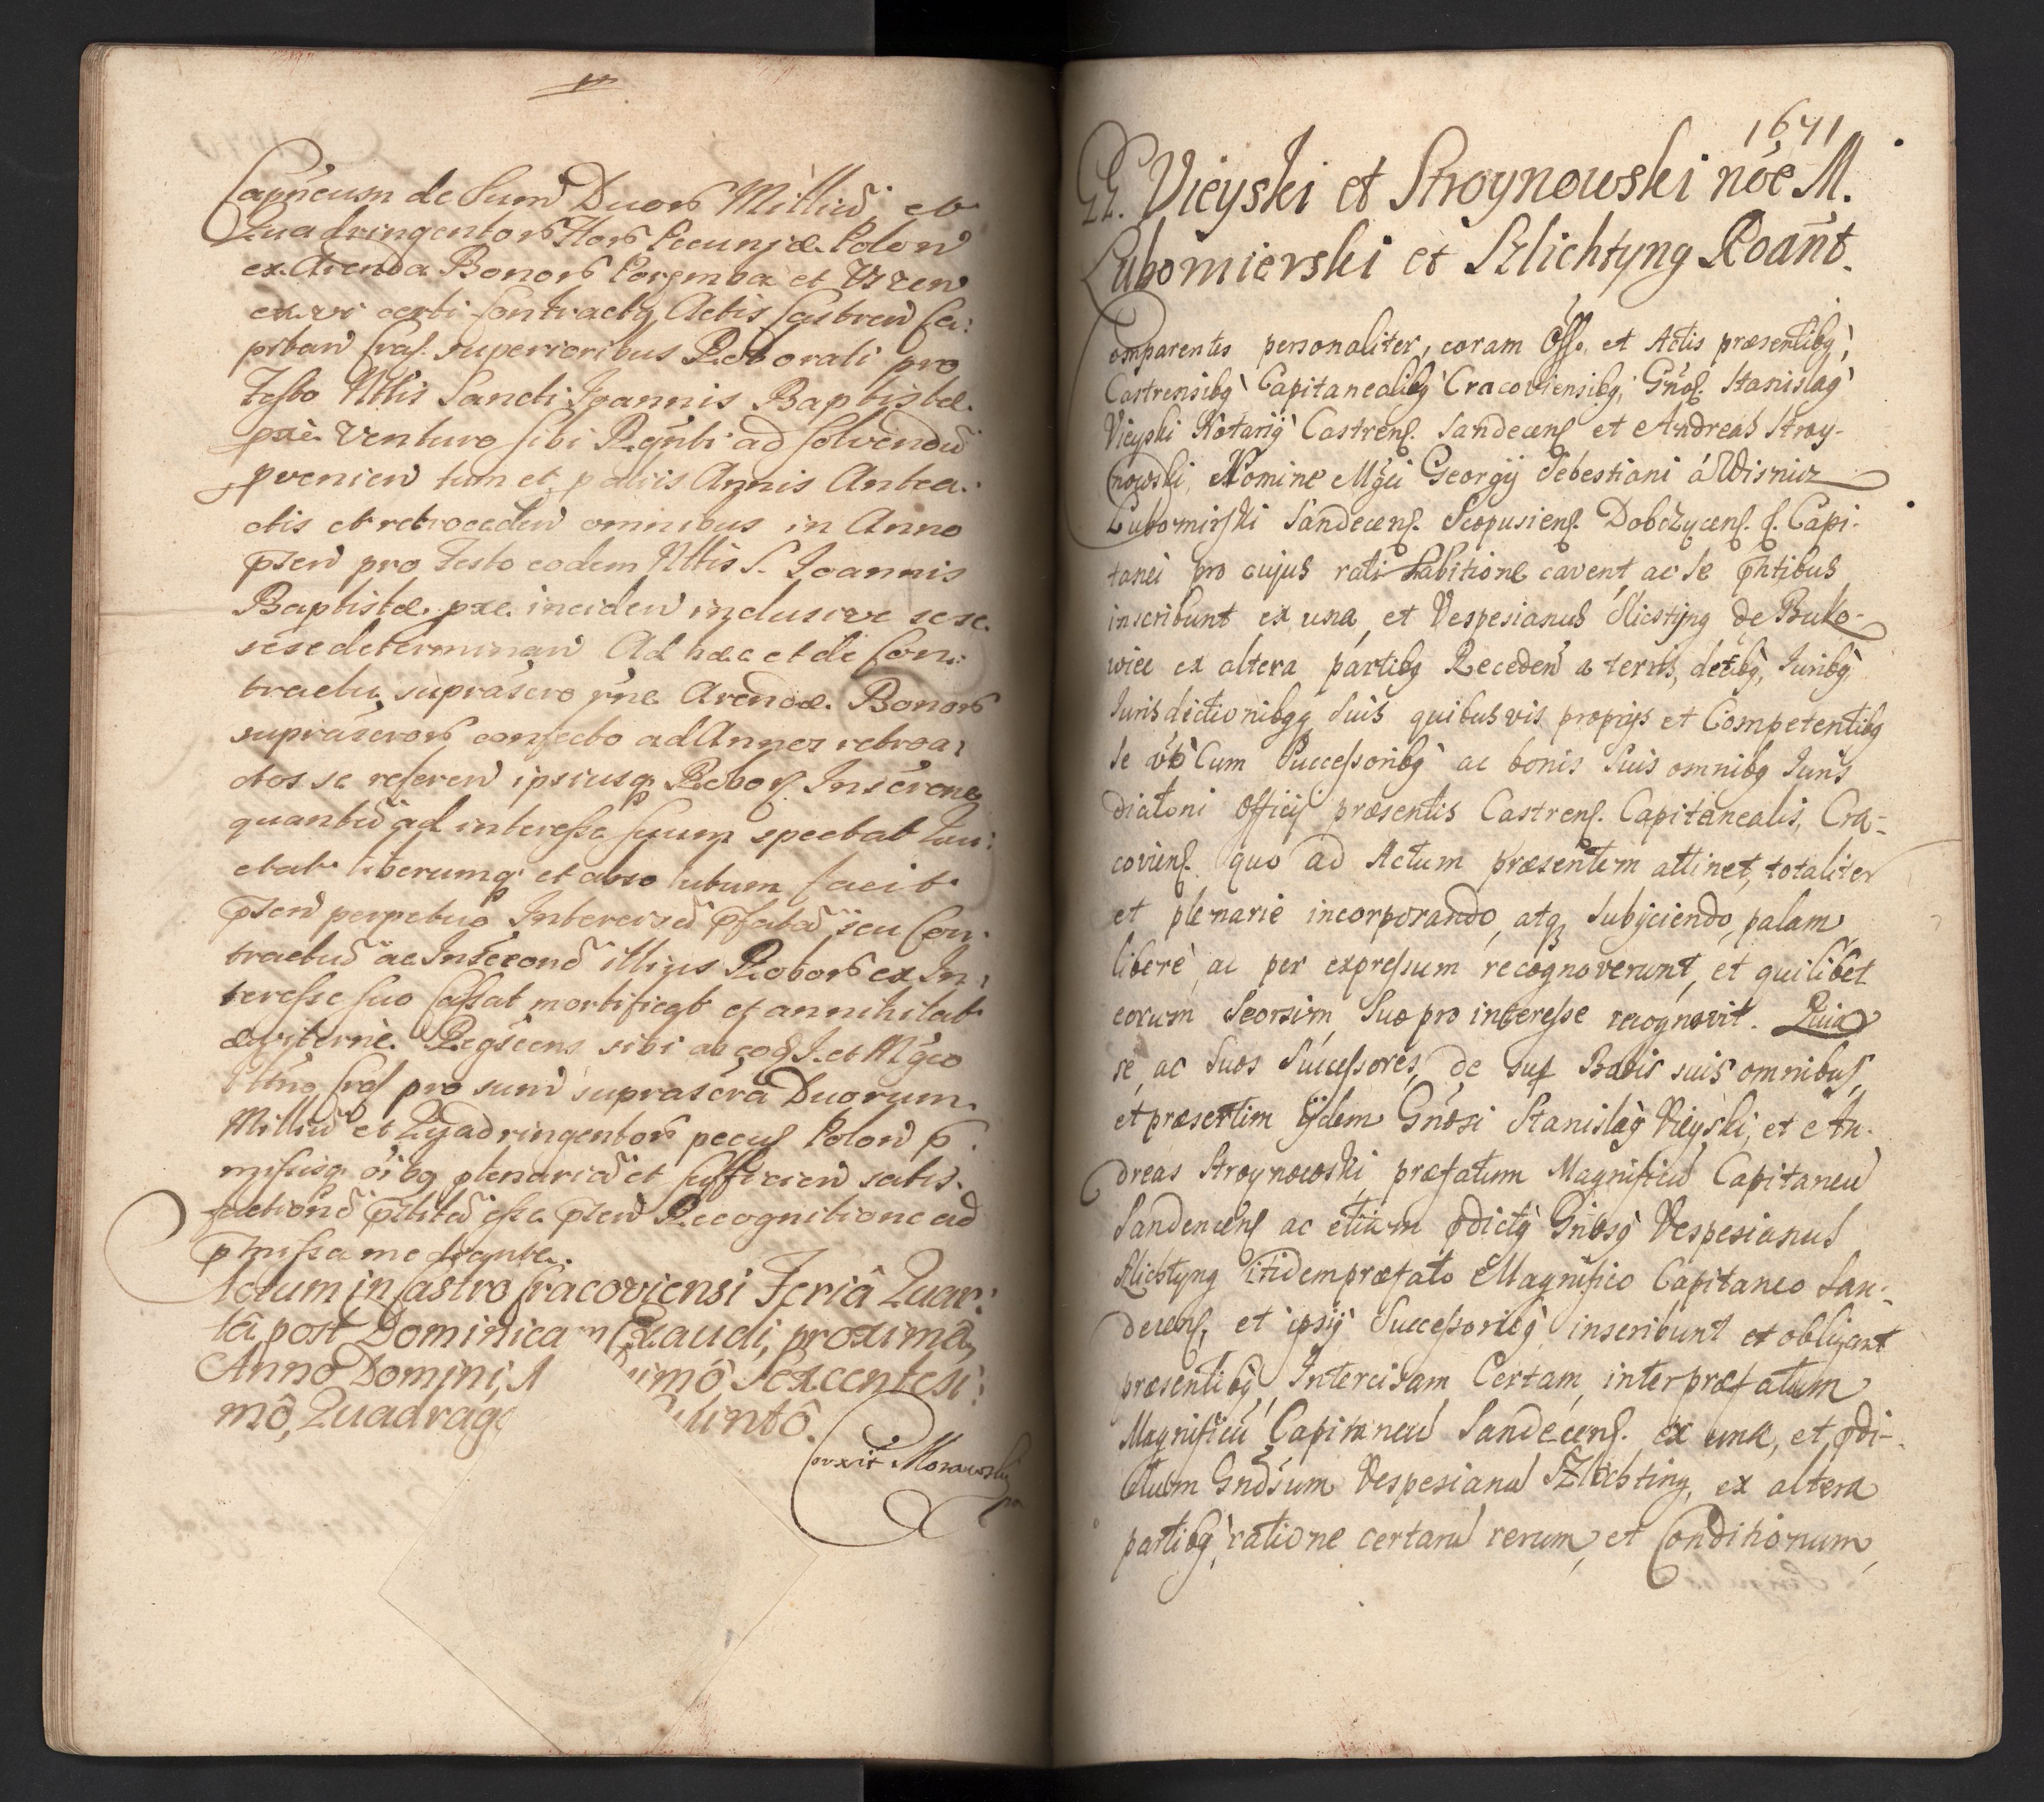 Capneum de Sum̃ Duorũ Milliũ et
Quadringentorũ flor̃ Pecuniæ Polon̄
ex Arenda Bonorũ Poremba et
ex vi certi Contractus Actis Castren̄ Ca:
pitan̄ Crac. superioribus Roborati pro
Festo Nttis Sancti Joannis Baptistæ
pxe venturo sibi ad solvendũ
provenien̄ tum et Annis Antea:
ctis et retroceden̄ omnibus in Anno
p̄sen̄ pro Festo eodem Nttis S. Joannis
Baptistæ pxe inciden̄ inclusive sese
sese determinan̄ Ad hæc et de Con:
tractu suprascr̃o Arendæ Bonorũ
suprascrorũ confecto ad Annos retroa:
ctos se referen̄ ipsiusq̢ Robor. Inscr̃one
quantũ ad interesse suum spectat Qui:
etat liberumq̢ et absolutum facit
p̄sen̄ perpetuo Intercisã p̄fatã seu Con:
tractũ ac Inscr̃onẽ illius Robor̃ ex In:
teresse suo cassat mortificat et annihilat
æviternè. sibi ab eod̃ J. et Mg̃co
Crac pro sum̃ suprascr̃a Duorum
Milliũ et Quadringentorũ pecun̄ Polon̄ p̱
missisq̢ oibg plenariã et sufficien̄ satis
factionẽ p̄stitã esse p̄sen̄ Recognitione ad
p̄missa mediante.
Actum in Castro Cracoviensi Feriâ Quar:
tâ post Dominicam Exaudi, proximâ,
Annô Domini, M simô Sexcentesi:
mô, Quadrage Quintô.
Correxit Morawsky
1671
GG. Vieyski et Stroynowski nõe M.
Lubomierski et Szlichtyng Roãnt.
Comparentes personaliter, coram Offo. et Actis præsentibg,
Castrensibg Capitanealibg Cracoviensibg, Gn̄os. Stanislag
Vieyski Notarig Castrens. Sandecens et Andreas Stroy-
nowski, Nomine Mg̃ci Georgij Sebestiani á Wisnicz
Lubomirski Sandecens. Scepusiens. Dobczycens. s. Capi-
tanei pro cujus rati habitione cavent, ac se p̄ntibus
inscribunt ex una, et Vespesianus Slichtyng de Buko-
wiec ex altera partibg Receden̄ a terris, distg, Juribg
Jurisdictionibgq̢ suis quibusvis proprijs et Competentibg
se v̄b Cum Successoribg ac bonis suis omnibg Juris
dictioni Officij præsentis Castrens. Capitanealis, Cra-
coviens. quo ad Actum præsentem attinet, totaliter
et plenarie incorporando, atq̢ subijciendo, palam
liberè, ac per expressum recognoverunt, et quilibet
eorum seorsim suo pro interesse recognovit. Quia
se, ac suos Successores, de sup Bonis suis omnibus,
et præsertim ijdem Gn̄osi Stanislag Vieyski, et An-
dreas Stroynowski præfatum Magnificũ Capitaneũ
Sandecens ac etiam p̱dictg Gn̄osg Vespesianus
Slichtyng itidem præfato Magnifico Capitaneo San-
decens, et ipsig Successoribg inscribunt et obligant
præsentibg, Intercisam Certam, inter præfatum
Magnificũ Capitaneũ Sandecens. ex una, et p̱di-
ctum Gnōsum Vespesianũ Szlichting, ex altera
partibg, ratione certarũ rerum, et Conditionum